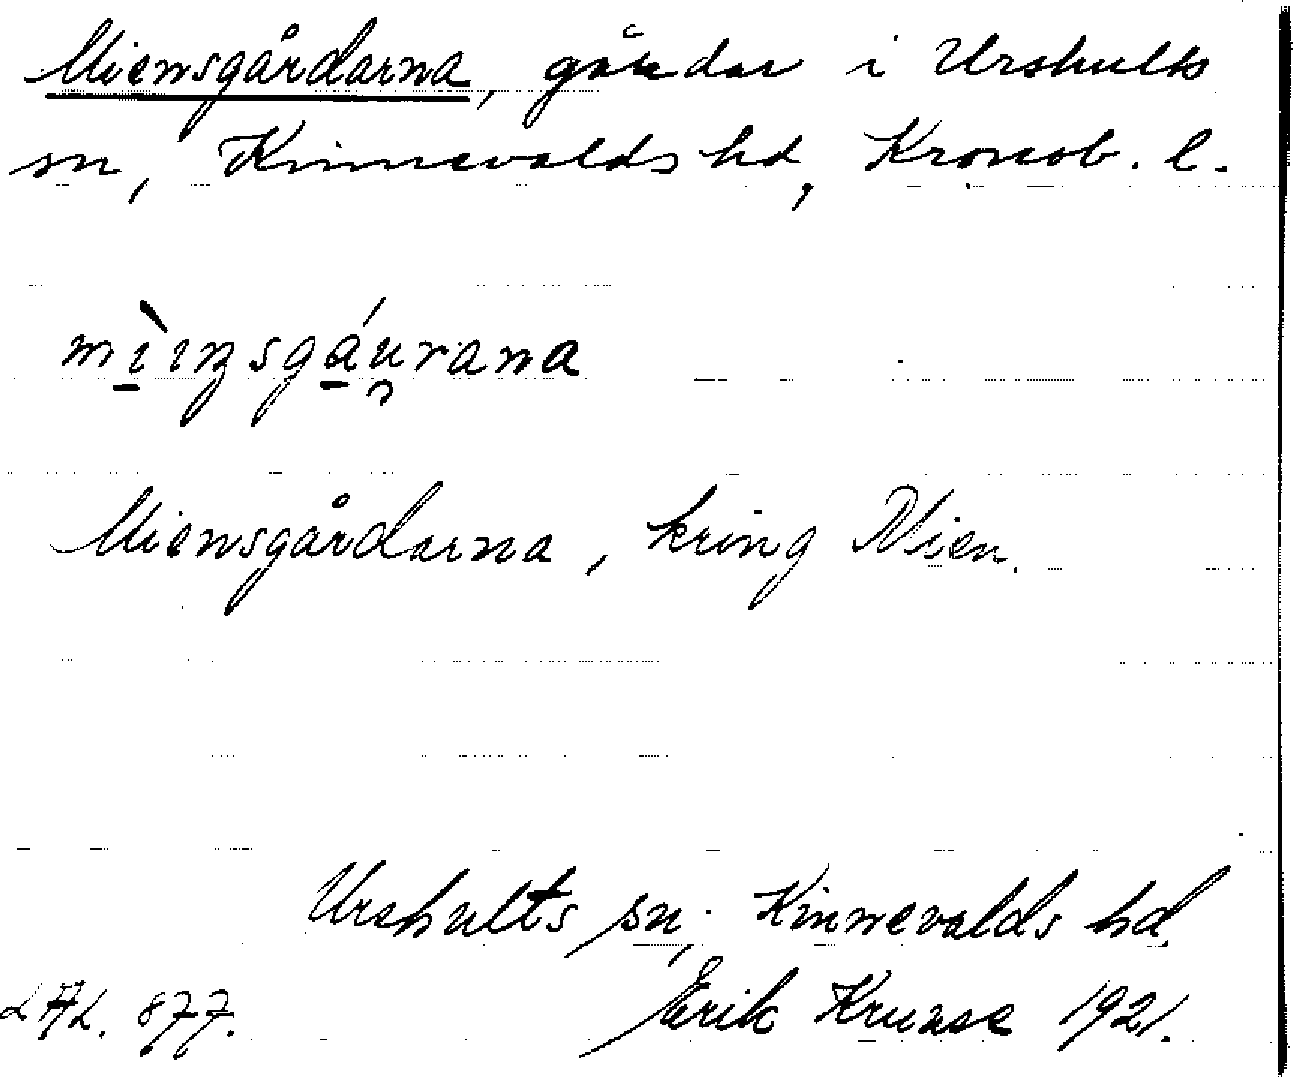 Miensgårdarna, gårdar i Urshults
sn, Kinnevalds hd, Kronob. l.
mìɪnsgáu̯rana
Miensgårdarna, kring Mien.
Urshults sn, Kinnevalds hd.
LAL. 877. Erik Kruuse 1921.